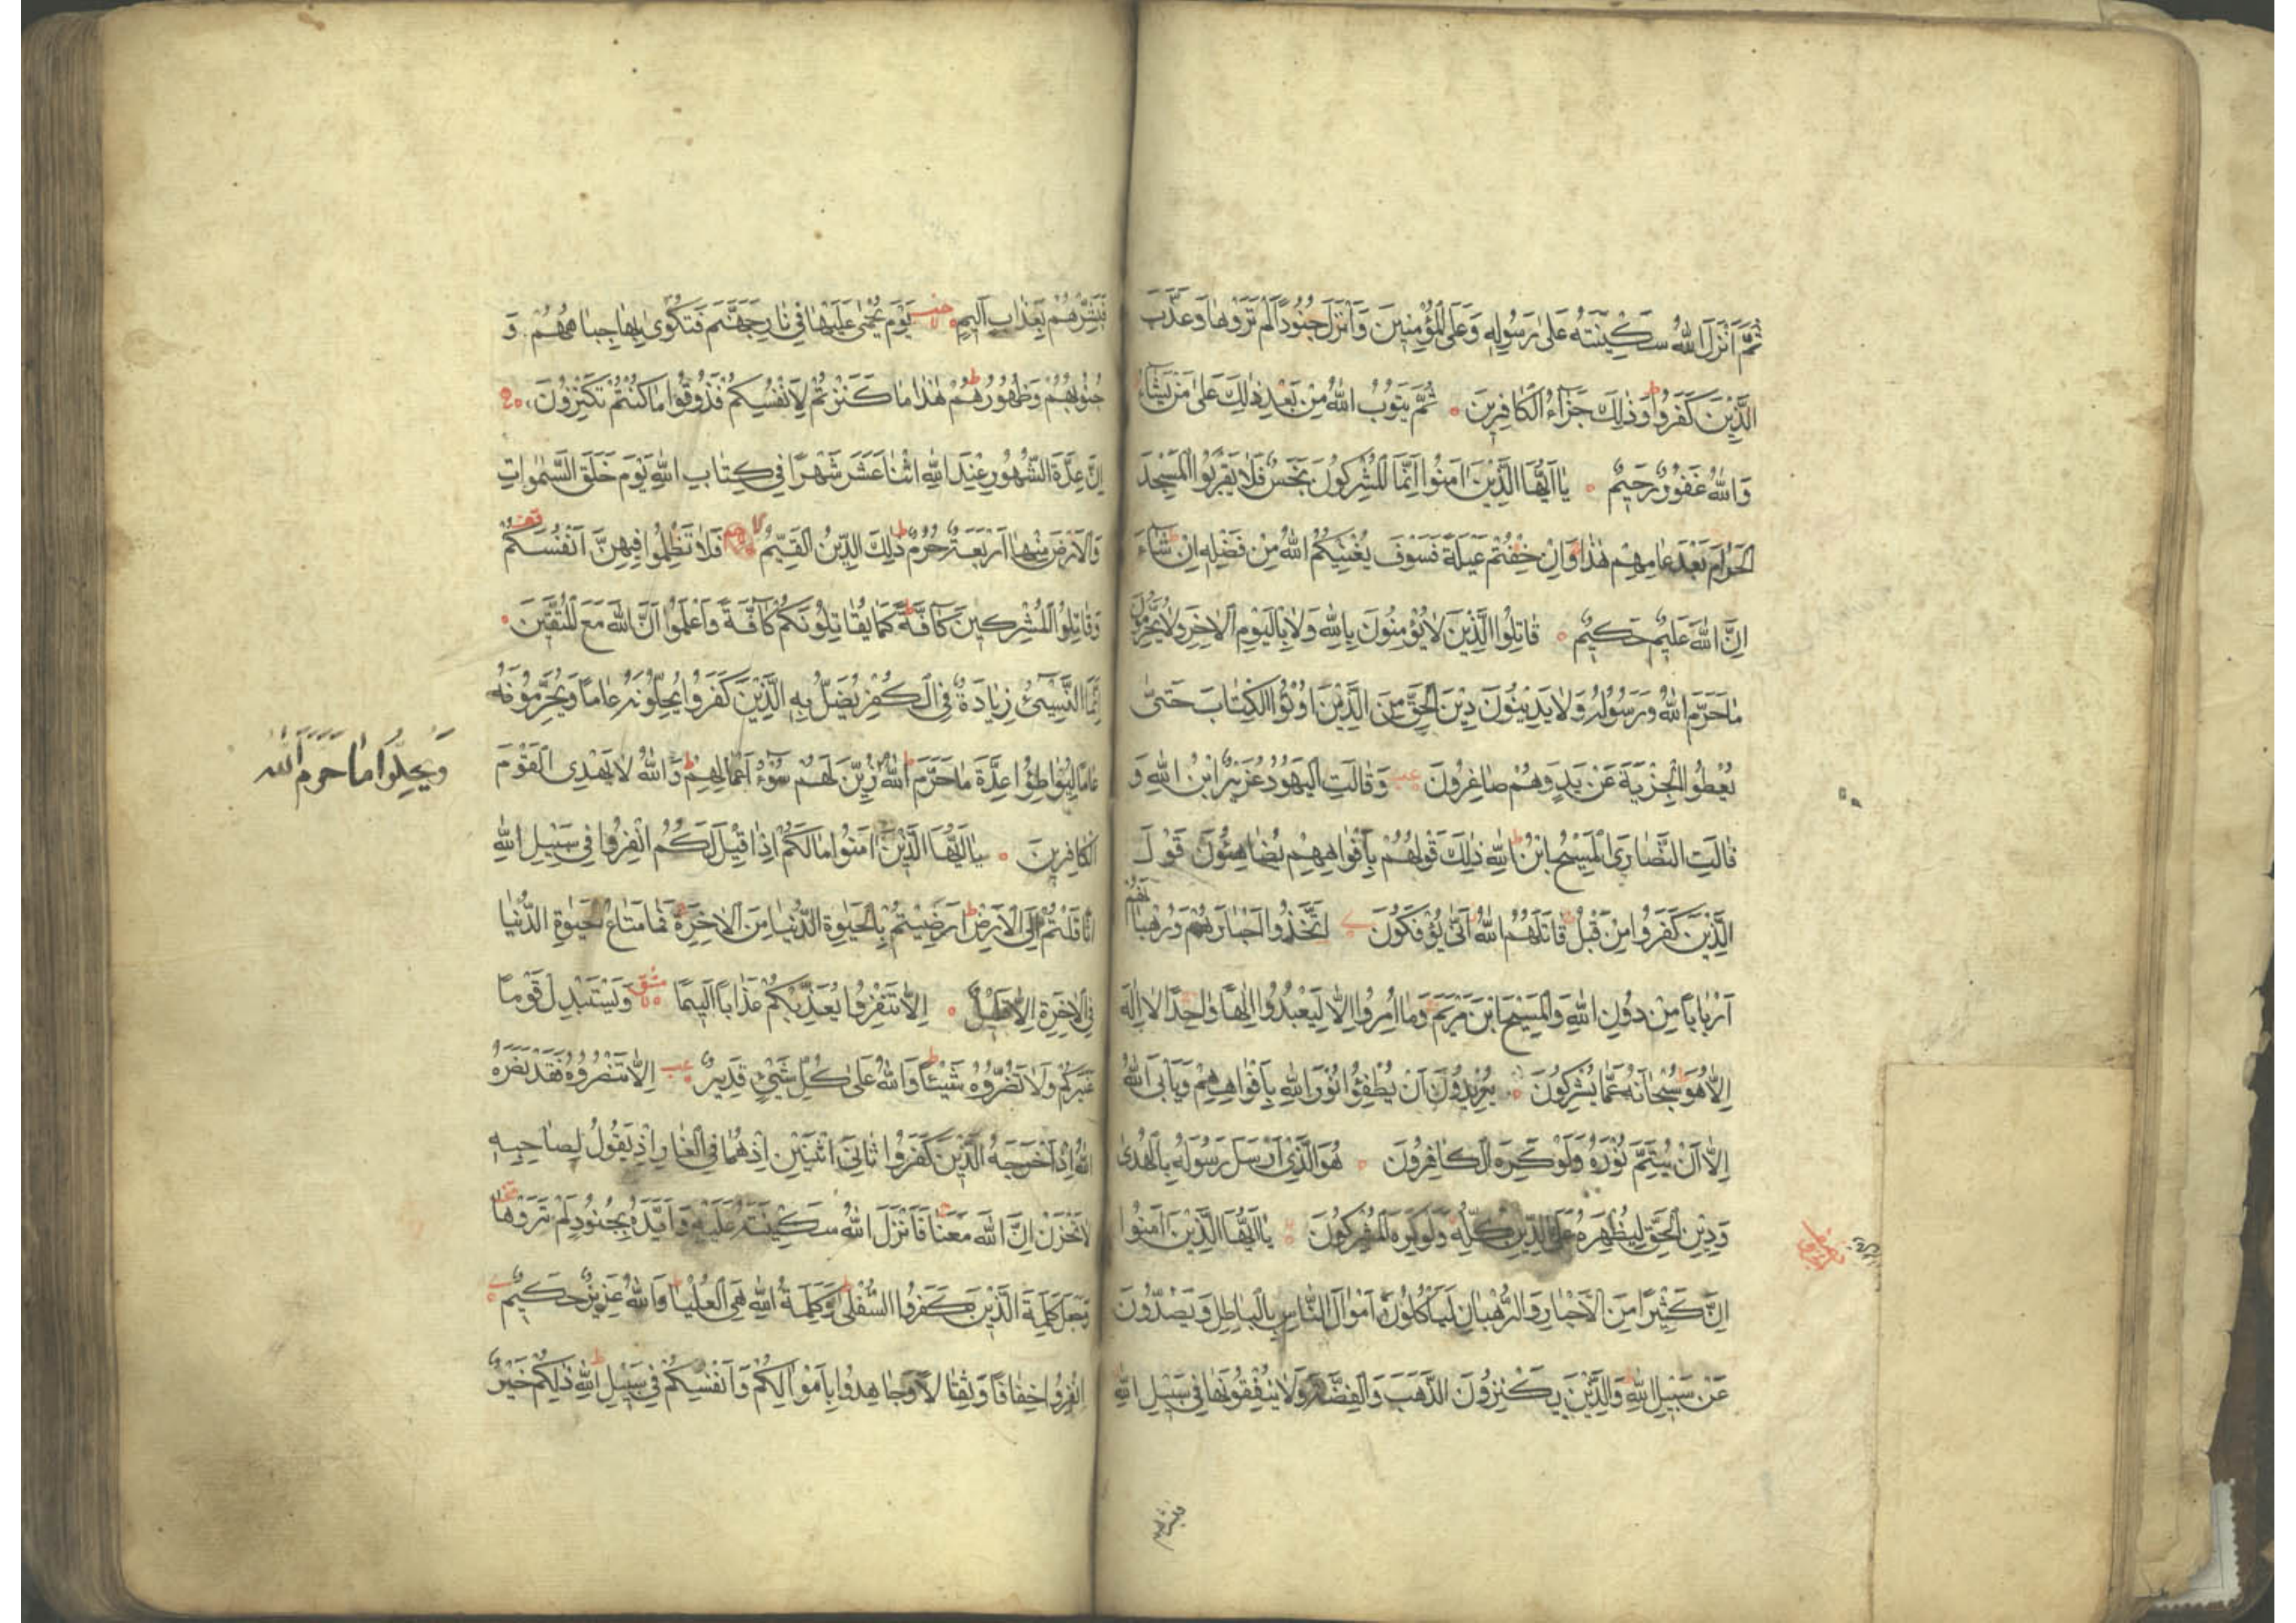 ثُمَّ اَنْزَلَ اللّٰهُ سَكِينَتَهُ عَلٰى رَسُولِهِ وَعَلَى الْمُؤْمِنِينَ وَاَنْزَلَ جُنُودًا لَمْ تَرَوْهَا وَعَذَّبَ
الَّذِينَ كَفَرُوا وَذٰلِكَ جَزَآءُ الْكَافِرِينَ ثُمَّ يَتُوبُ اللّٰهُ مِنْ بَعْدِ ذٰلِكَ عَلٰى مَنْ يَشَآءُ
وَاللّٰهُ غَفُورٌ رَحِيمٌ يَا اَيُّهَا الَّذِينَ اٰمَنُوا اِنَّمَا الْمُشْرِكُونَ نَجَسٌ فَلَا يَقْرَبُوا الْمَسْجِدَ
الْحَرَامَ بَعْدَ عَامِهِمْ هٰذَا وَاِنْ خِفْتُمْ عَيْلَةً فَسَوْفَ يُغْنِيكُمُ اللّٰهُ مِنْ فَضْلِهِ اِنْ شَآءَ
اِنَّ اللّٰهَ عَلِيمٌ حَكِيمٌ قَاتِلُوا الَّذِينَ لَا يُؤْمِنُونَ بِاللّٰهِ وَلَا بِالْيَوْمِ الْاٰخِرِ وَلَا يُحَرِّمُونَ
مَا حَرَّمَ اللّٰهُ وَرَسُولُهُ وَلَا يَدِينُونَ دِينَ الْحَقِّ مِنَ الَّذِينَ اُوتُوا الْكِتَابَ حَتّٰى
يُعْطُوا الْجِزْيَةَ عَنْ يَدٍ وَهُمْ صَاغِرُونَ وَقَالَتِ الْيَهُودُ عُزَيْرٌ ابْنُ اللّٰهِ وَ
قَالَتِ النَّصَارَى الْمَسِيحُ ابْنُ اللّٰهِ ذٰلِكَ قَوْلُهُمْ بِاَفْوَاهِهِمْ يُضَاهِئُونَ قَوْلَ
الَّذِينَ كَفَرُوا مِنْ قَبْلُ قَاتَلَهُمُ اللّٰهُ اَنّٰى يُؤْفَكُونَ اِتَّخَذُوا اَحْبَارَهُمْ وَرُهْبَانَهُمْ
اَرْبَابًا مِنْ دُونِ اللّٰهِ وَالْمَسِيحَ ابْنَ مَرْيَمَ وَمَا اُمِرُوا اِلَّا لِيَعْبُدُوا اِلٰهًا وَاحِدًا لَا اِلٰهَ
اِلَّا هُوَ سُبْحَانَهُ عَمَّا يُشْرِكُونَ يُرِيدُونَ اَنْ يُطْفِئُوا نُورَ اللّٰهِ بِاَفْوَاهِهِمْ وَيَاْبَى اللّٰهُ
اِلَّا اَنْ يُتِمَّ نُورَهُ وَلَوْ كَرِهَ الْكَافِرُونَ هُوَ الَّذِي اَرْسَلَ رَسُولَهُ بِالْهُدٰى
وَدِينِ الْحَقِّ لِيُظْهِرَهُ عَلَى الدِّينِ كُلِّهِ وَلَوْ كَرِهَ الْمُشْرِكُونَ يَا اَيُّهَا الَّذِينَ اٰمَنُوا
اِنَّ كَثِيرًا مِنَ الْاَحْبَارِ وَالرُّهْبَانِ لَيَاْكُلُونَ اَمْوَالَ النَّاسِ بِالْبَاطِلِ وَيَصُدُّونَ
عَنْ سَبِيلِ اللّٰهِ وَالَّذِينَ يَكْنِزُونَ الذَّهَبَ وَالْفِضَّةَ وَلَا يُنْفِقُونَهَا فِي سَبِيلِ اللّٰهِ
فبشرهم
فَبَشِّرْهُمْ بِعَذَابٍ اَلِيمٍ يَوْمَ يُحْمٰى عَلَيْهَا فِي نَارِ جَهَنَّمَ فَتُكْوٰى بِهَا جِبَاهُهُمْ وَ
جُنُوبُهُمْ وَظُهُورُهُمْ هٰذَا مَا كَنَزْتُمْ لِاَنْفُسِكُمْ فَذُوقُوا مَا كُنْتُمْ تَكْنِزُونَ
اِنَّ عِدَّةَ الشُّهُورِ عِنْدَ اللّٰهِ اثْنَا عَشَرَ شَهْرًا فِي كِتَابِ اللّٰهِ يَوْمَ خَلَقَ السَّمٰوَاتِ
وَالْاَرْضَ مِنْهَا اَرْبَعَةٌ حُرُمٌ ذٰلِكَ الدِّينُ الْقَيِّمُ فَلَا تَظْلِمُوا فِيهِنَّ اَنْفُسَكُمْ
وَقَاتِلُوا الْمُشْرِكِينَ كَآفَّةً كَمَا يُقَاتِلُونَكُمْ كَآفَّةً وَاعْلَمُوا اَنَّ اللّٰهَ مَعَ الْمُتَّقِينَ
اِنَّمَا النَّسِيٓءُ زِيَادَةٌ فِي الْكُفْرِ يُضَلُّ بِهِ الَّذِينَ كَفَرُوا يُحِلُّونَهُ عَامًا وَيُحَرِّمُونَهُ
عَامًا لِيُوَاطِئُوا عِدَّةَ مَا حَرَّمَ اللّٰهُ زُيِّنَ لَهُمْ سُوٓءُ اَعْمَالِهِمْ وَاللّٰهُ لَا يَهْدِي الْقَوْمَ
فَيُحِلُّوا مَا حَرَّمَ اللّٰهُ
الْكَافِرِينَ يَا اَيُّهَا الَّذِينَ اٰمَنُوا مَا لَكُمْ اِذَا قِيلَ لَكُمُ انْفِرُوا فِي سَبِيلِ اللّٰهِ
اثَّاقَلْتُمْ اِلَى الْاَرْضِ اَرَضِيتُمْ بِالْحَيٰوةِ الدُّنْيَا مِنَ الْاٰخِرَةِ فَمَا مَتَاعُ الْحَيٰوةِ الدُّنْيَا
فِي الْاٰخِرَةِ اِلَّا قَلِيلٌ اِلَّا تَنْفِرُوا يُعَذِّبْكُمْ عَذَابًا اَلِيمًا وَيَسْتَبْدِلْ قَوْمًا
غَيْرَكُمْ وَلَا تَضُرُّوهُ شَيْئًا وَاللّٰهُ عَلٰى كُلِّ شَيْءٍ قَدِيرٌ اِلَّا تَنْصُرُوهُ فَقَدْ نَصَرَهُ
اللّٰهُ اِذْ اَخْرَجَهُ الَّذِينَ كَفَرُوا ثَانِيَ اثْنَيْنِ اِذْ هُمَا فِي الْغَارِ اِذْ يَقُولُ لِصَاحِبِهِ
لَا تَحْزَنْ اِنَّ اللّٰهَ مَعَنَا فَاَنْزَلَ اللّٰهُ سَكِينَتَهُ عَلَيْهِ وَاَيَّدَهُ بِجُنُودٍ لَمْ تَرَوْهَا
وَجَعَلَ كَلِمَةَ الَّذِينَ كَفَرُوا السُّفْلٰى وَكَلِمَةُ اللّٰهِ هِيَ الْعُلْيَا وَاللّٰهُ عَزِيزٌ حَكِيمٌ
اِنْفِرُوا خِفَافًا وَثِقَالًا وَجَاهِدُوا بِاَمْوَالِكُمْ وَاَنْفُسِكُمْ فِي سَبِيلِ اللّٰهِ ذٰلِكُمْ خَيْرٌ